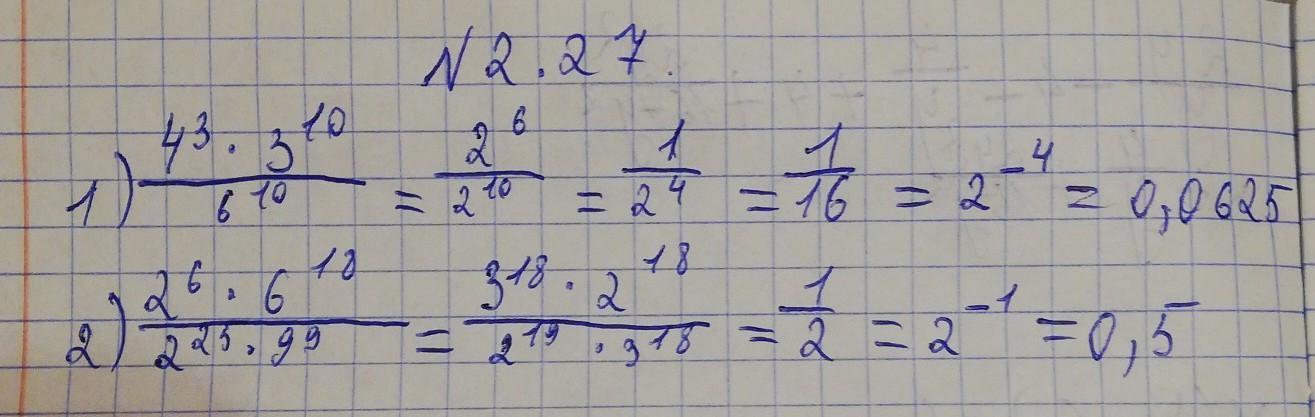 N 2.27.
1) 4³ · 3¹⁰ / 6¹⁰ = 2⁶ / 2¹⁰ = 1 / 2⁴ = 1 / 16 = 2⁻⁴ = 0,0625
2) 2⁶ · 6¹⁸ / 2²⁵ · 9⁹ = 3¹⁸ · 2¹⁸ / 2¹⁹ · 3¹⁸ = 1 / 2 = 2⁻¹ = 0,5